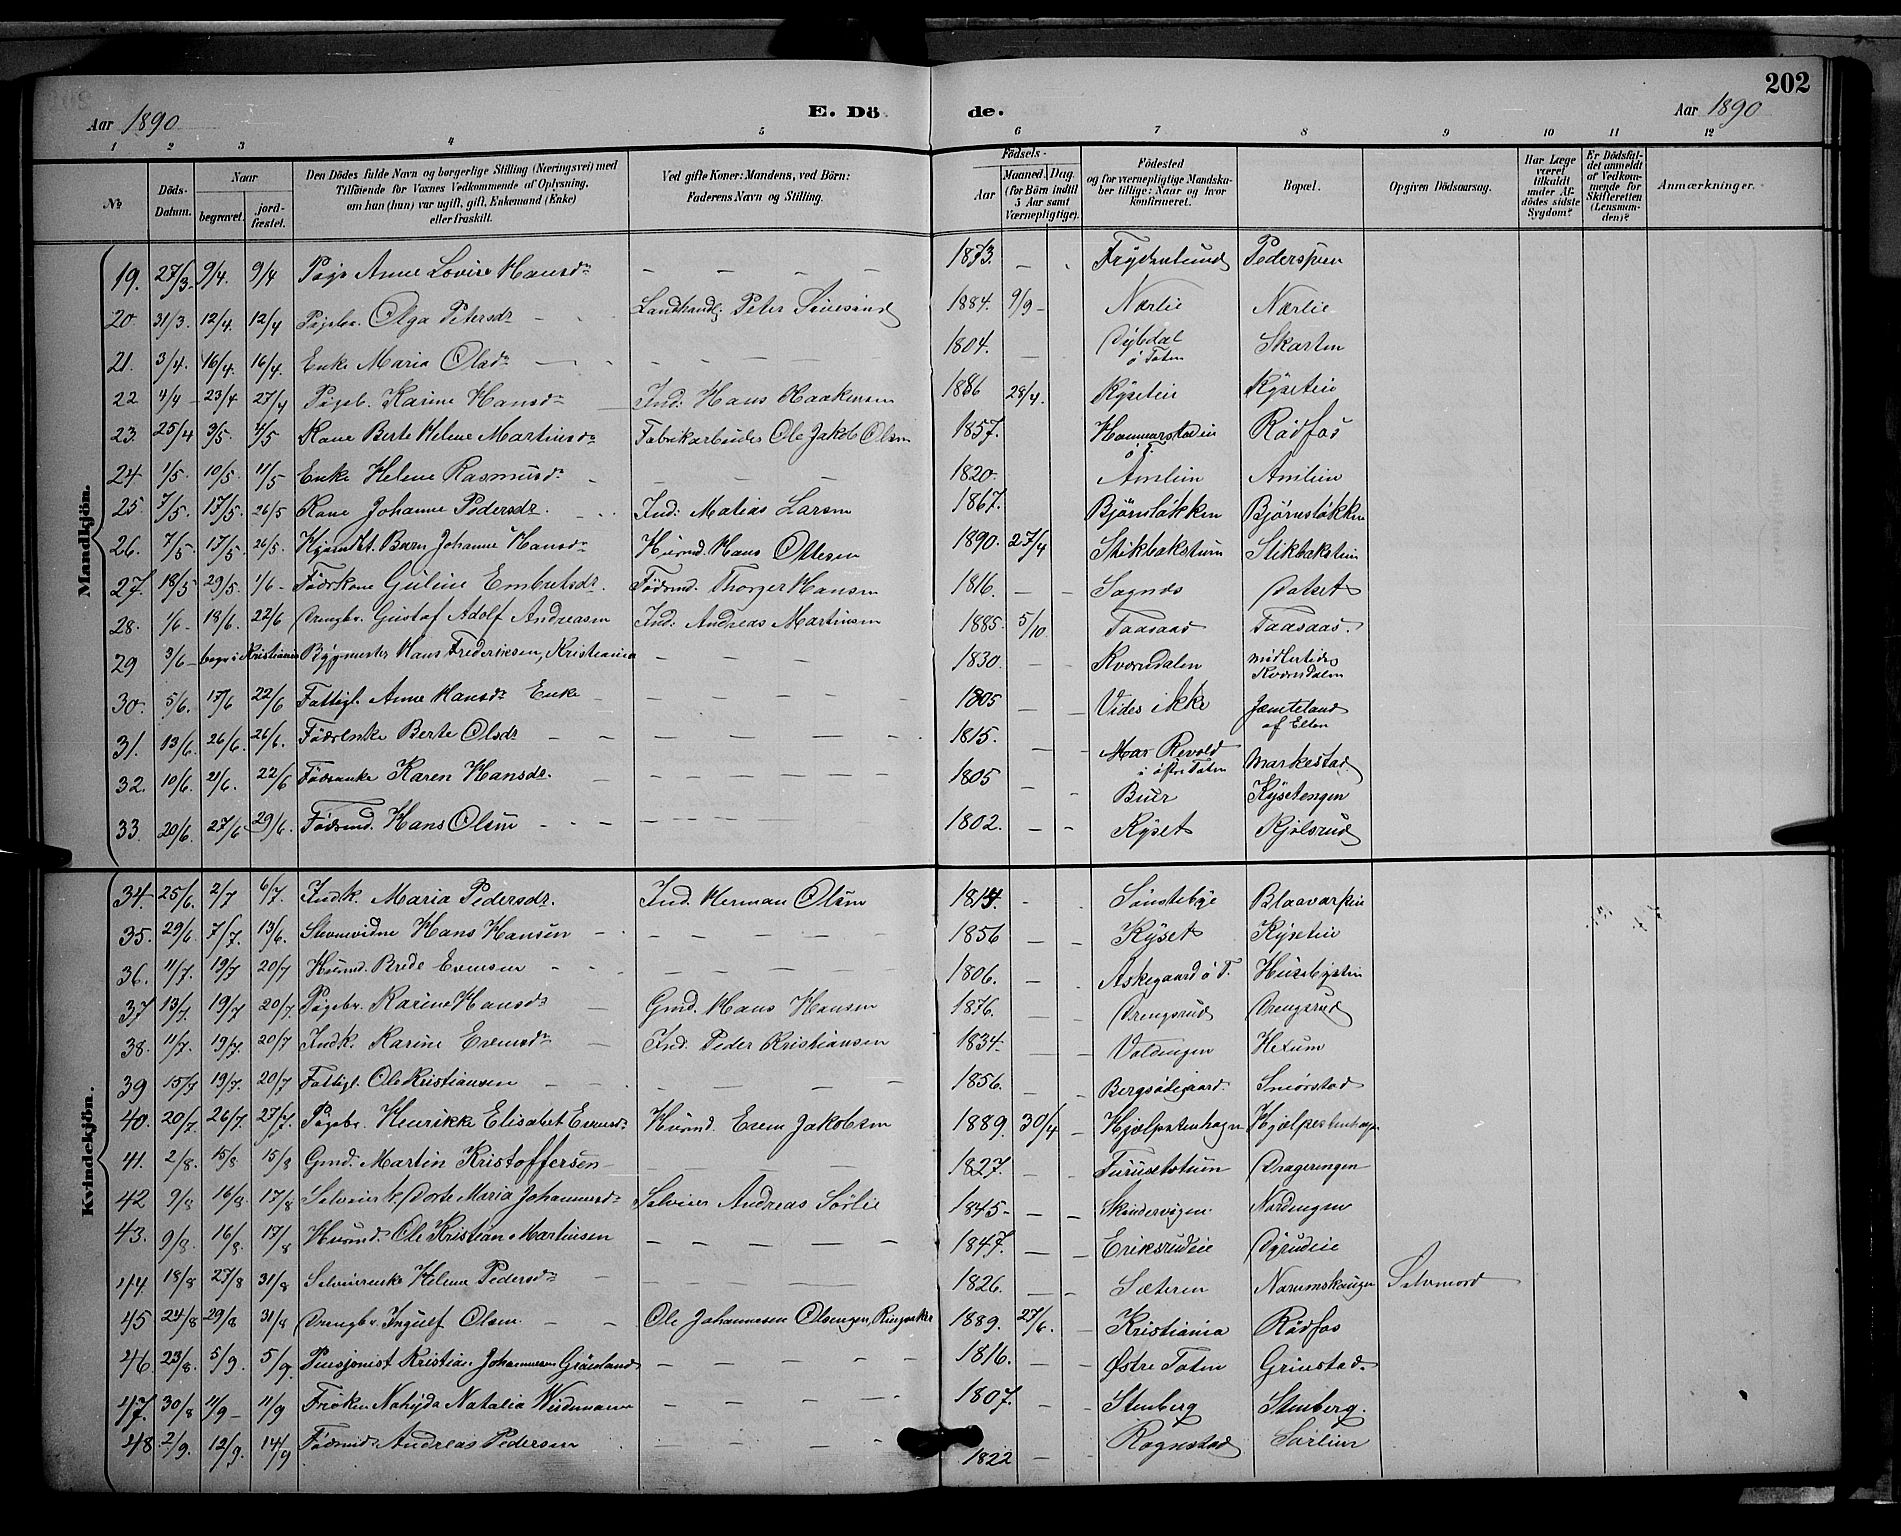 202
Aar 1890 E. Dö de. Aar 1890
1 2 3 4 5 6 7 8 9 10 11 12
№
Döds-Datum.
Naar begravet. jordfæstet.
Den Dödes fulde Navn og borgerlige Stilling (Næringsvei) med Tilföiende for Voxnes Vedkommende af Oplysning, om han (hun) var ugift, gift, Enkemand (Enke) eller fraskilt.
Ved gifte Koner: Mandens, ved Börn: Faderens Navn og Stilling.
Födsels-
Aar Maaned. Dag. (for Börn indtil 5 Aar samt Værnepligtige).
Födested og for værnepligtige Mandskaber tillige: Naar og hvor konfirmeret.
Bopæl.
Opgiven Dödsaarsag.
Har Læge været tilkaldt under Afdödes sidste Sygdom?
Er Dödsfaldet anmeldt af Vedkommende for Skifteretten (Lensmanden)?
Anmærkninger.
Mandkjön.
19. 27/3. 9/4. 9/4 Pige Anne Lovise Hansdr — — — — 1873. — Frydenlund Pederspven
20 31/3. 12/4. 12/4 Pigebr. Olga Petersdr — Landhandl. Peter 1884. 9/9 — Nærlie Nærlie
21. 3/4. 16/4. 16/4. Enke Maria Olsdr — — — — 1804. — Dybdal ö Toten Skarten
22 4/4 — 23/4 27/4 Pigeb. Karine Hansdr — Ind. Hans Haakensen 1886 28/4. Kyseteie Kyseteie
23. 25/4 3/5. 4/5 Kone Berte Helene Martinsdr Fabrikarbeider Ole Jakob Olsen 1857. Hammerstadeie ö. T. Rödfos
24 1/5. 10/5. 11/5 Enke Helene Rasmusdr — — — — 1820. Amlien Amlien
25. 7/5. 17/5. 26/5 Kone Johanne Pedersdr. Ind: Matias Larsen 1867. Björnslökken Björnslökken
26. 7/5 17/5 26/5. Hjemdöbt Barn Johanne Hansdr Husmd. Hans Ottesen 1890. 27/4 Stikbakstuen Stikbakstein
27. 18/5 29/5. 1/6 — Födrkone Guline Embretsdr. Födrmd. Thorger Hansen 1816. — — Sognes Dalset
28. 1/6 — 18/6. 22/6 Drengbr. Gustaf Adolf Andreasen Ind. Andreas Martinsen 1885. 5/10 Taasaas Taasaas.
29 3/6 — begr. i Kristiania Bygmester Hans Frederiksen, Kristiania — — — 1830. — — Kværndalen midlertidig Kværndalen
30. 5/6. 17/6 22/6 Fattigl. Anne Hansdr Enke — — — — 1805 — — Vides ikke Jæmteland af Elten
31. 13/6. 26/6. 26/6. Födrenke Berte Olsdr — — — — 1815. — — Revold i östre Toten Markestad
32. 10/6. 21/6. 22/6 Födrenke Karen Hansdr. — — — — 1805 — — Buer Kysetengen
33. 20/6. 27/6 29/6. Födrmd. Hans Olsen — — — — 1802. — — Kyset Kjölsrud
Kvindekjön.
34. 25/6. 2/7 6/7. Indk. Maria Pedersdr. Ind. Herman Olsen 1814. — — Sönstebye Blaavarpen
35. 29/6. 7/7. 13/6. Hans Hansen — — — — 1856 — — Kyset Kyseteie
36. 11/7. 19/7 20/7 Husmd. Brede Evensen — — — — 1806. — — Askegaard ö T. Husebystein
37 13/7 19/7 20/7. Pigebr. Karine Hansdr — Gmd. Hans Hansen 1876. — — Drengsrud Drengsrud
38. 11/7. 19/7. 20/7 Indk. Karine Evensdr — Ind. Peder Kristiansen 1834. — — Voldengen Hexum
39 15/7 19/7. 20/7 Fattigl. Ole Kristiansen — — — — 1856. — — Bergsödegaard. Smörstad
40. 20/7 26/7. 27/7. Pigebr. Henrikke Elisabet Evensdr Husmd. Even Jakobsen 1889. 30/4 — Hjælpstenhagen Hjælpestenhagen
41. 2/8. 15/8 15/8 Gmd. Martin Kristoffersen — — — — 1827. — — Furusetstuen Drageringen
42 9/8 16/8 17/8 Selveierk. Dorte Maria Johannesdr Selveier Andreas Sörlie 1845 — — Skindervigen Nordengen
43. 9/8. 16/8. 17/8 Husmd. Ole Kristian Martinsen — — — — 1847. — — Eriksrudeie Dyrudeie
44. 18/8 27/8 31/8 Selveierenke Helene Pedersdr — — — — 1826. — — Sæteren Narumshaugen Selvmord
45 24/8 29/8 31/8 Drengbr. Ingulf Olsen — — Ole Johannesen Olsengen, Ringsaker 1889. 27/6. — Kristiania Rödfos
46 23/8. 5/9. 5/9. Pensjonist Kristian Johannesen Gröisland — — — — 1816. — — Östre Toten Grinstad
47. 30/8 11/9 — 11/9 Fröken Nahyda Natalia Weidemann — — — 1807. — — Stenberg Stenberg.
48 2/9. 12/9. 14/9 Födrmd. Andreas Pedersen — — — — 1822 — — Rognstad Sörlien